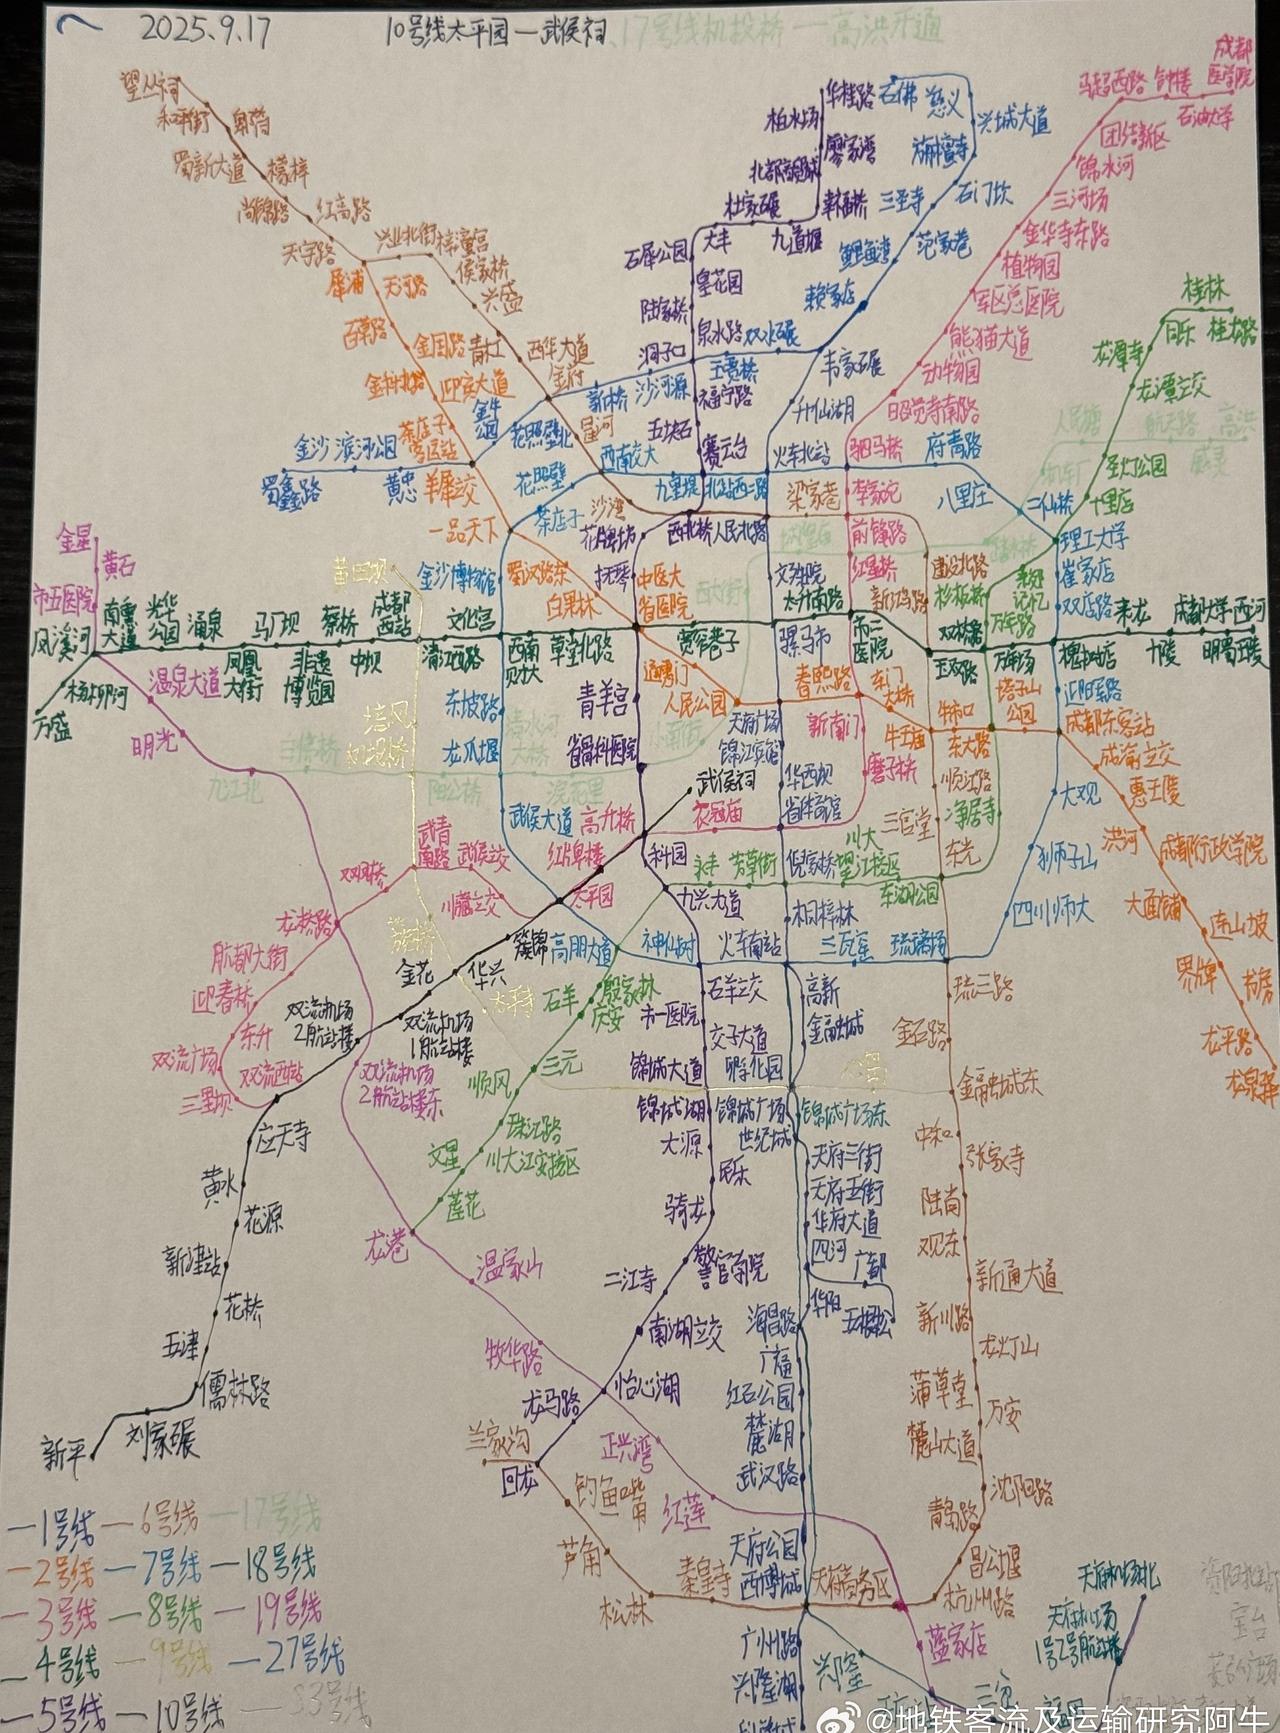 2025.9.17
10号线太平园—武侯祠、17号线机投桥—高洪开通
望丛祠
和平街
郫筒
蜀新大道
檬梓
尚锦路
红高路
天宇路
兴业北街
梓潼宫
侯家桥
兴盛
犀浦
天河路
百草路
金周路
青杠
西华大道
金府
金科北路
迎宾大道
茶店子客运站
羊犀立交
一品天下
星河
沙湾
华桂路
石佛
慈义
兴城大道
柏水场
廖家湾
韦家碾
杜家碾
三圣寺
石门坎
石犀公园
大丰
九道堰
范家巷
皇花园
陆家桥
赖家店
泉水路
双水碾
洞子口
玉赛桥
新桥
沙河源
福宁路
升仙湖
五块石
赛云台
金牛公园
花照壁北
金沙滨河公园
蜀鑫路
黄忠
花照壁
西南交大
九里堤
北站西二路
火车北站
驷马桥
府青路
八里庄
二仙桥
茶店子
花牌坊
西北桥
人民北路
梁家巷
李家沱
前锋路
成都医学院
马超西路
钟楼
石油大学
团结新区
锦水河
三河场
金华寺东路
植物园
军区总医院
熊猫大道
动物园
昭觉寺南路
桂林
同乐
桂龙路
龙潭寺
龙潭立交
人民塘
航天路
高洪
威灵
圣灯公园
十里店
理工大学
崔家店
双店路
金星
黄石
市五医院
凤溪河
南熏大道
光华公园
涌泉
马厂坝
蔡桥
成都西站
文化宫
凤凰大街
非遗博览园
中坝
清江西路
西南财大
草堂北路
宽窄巷子
杨柳河
万盛
温泉大道
明光
九江北
黄田坝
金沙博物馆
蜀汉路东
白果林
抚琴
中医大省医院
文殊院
太升南路
红星桥
新鸿路
建设北路
杉板桥
东郊记忆
万年路
骡马市
市二医院
双桥路
玉双路
万年场
槐树店
来龙
成都大学
西河
十陵
明蜀王陵
通惠门
人民公园
天府广场
春熙路
东门大桥
牛王庙
牛市口
东大路
塔子山公园
迎晖路
成都东客站
成渝立交
惠王陵
洪河
成都行政学院
大面铺
连山坡
界牌
书房
龙平路
龙泉驿
东坡路
龙爪堰
青羊宫
省骨科医院
锦江宾馆
华西坝
省体育馆
新南门
磨子桥
顺江路
净居寺
三官堂
东光
大观
狮子山
四川师大
培风
机投桥
清水河大桥
武侯祠
武侯大道
高升桥
衣冠庙
红牌楼
太平园
武青南路
武侯立交
双凤桥
川藏立交
龙桥路
科园
永丰
芳草街
倪家桥
川大望江校区
东湖公园
九兴大道
桐梓林
簇锦
高朋大道
神仙树
火车南站
三瓦窑
琉璃场
航都大街
迎春桥
东升
双流广场
双流西站
三里坝
双流机场2航站楼
金花
华兴
双流机场1航站楼
双流机场2航站楼东
太平寺
石羊
殷家林
庆安
三元
顺风
珠江路
文星
川大江安校区
莲花
龙港
石羊立交
市一医院
交子大道
锦城大道
孵化园
高新
金融城
琉三路
金石路
金融城东
锦城湖
锦城广场
锦城广场东
大源
世纪城
民乐
天府三街
天府五街
华府大道
四河
广都
五根松
华阳
中和
张家寺
陆肖
观东
新通大道
新川路
龙灯山
蒲草堂
万安
麓山大道
沈阳路
青岛路
昌公堰
杭州路
应天寺
黄水
花源
新津站
花桥
五津
儒林路
刘家碾
新平
骑龙
警官学院
二江寺
南湖立交
怡心湖
龙马路
回龙
温家山
牧华路
正兴湾
红莲
海昌路
广福
红石公园
麓湖
武汉路
天府公园
西博城
天府商务区
兰家沟
钓鱼嘴
芦角
松林
秦皇寺
广州路
兴隆湖
兴隆
蓝家店
三岔
福田
天府机场北
天府机场1号2号航站楼
资阳北站
宝台
—1号线—6号线—17号线
—2号线—7号线—18号线
—3号线—8号线—19号线
—4号线—9号线—27号线
—5号线—10号线
@地铁客流及运输研究阿牛